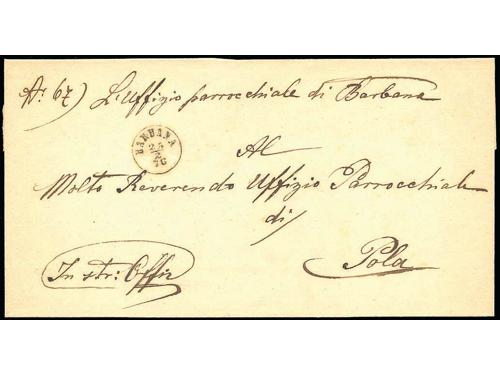 Nr: 67) L'Uffizio parrocchiale di Barbana
BARBANA
25
2
76
Al
Molto Reverendo Uffizio Parrocchiale
di
Pola
In str: Offiz